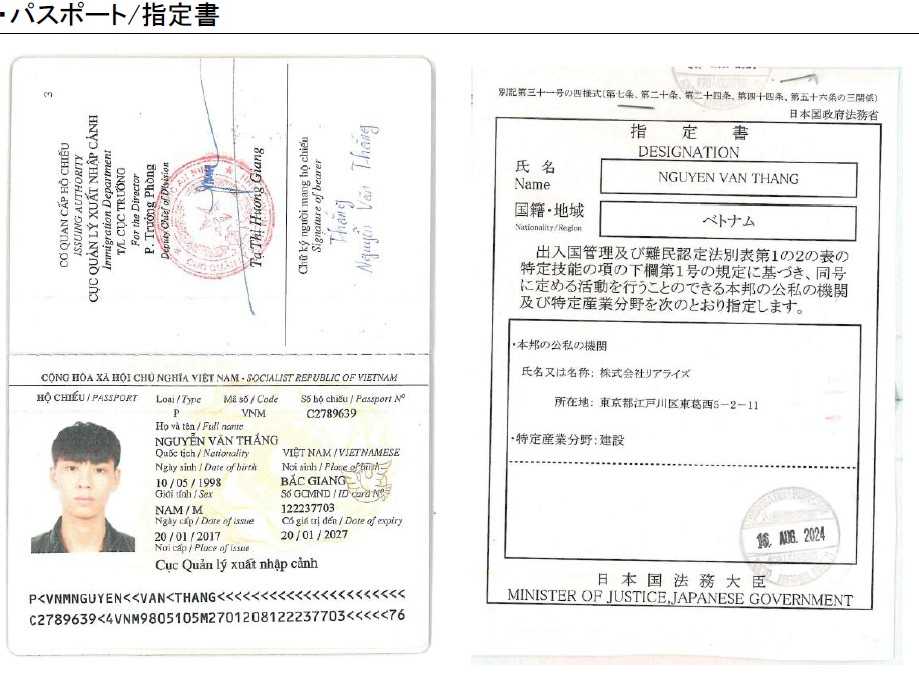 ・パスポート/指定書
3
CƠ QUAN CẤP HỘ CHIẾU
ISSUING AUTHORITY
CỤC QUẢN LÝ XUẤT NHẬP CẢNH
Immigration Department
T/L CỤC TRƯỞNG
For the Director
P. Trưởng Phòng
Deputy Chief of Division
Tạ Thị Hương Giang
Chữ ký người mang hộ chiếu
Signature of bearer
Thắng
Nguyễn Văn Thắng
CỘNG HÒA XÃ HỘI CHỦ NGHĨA VIỆT NAM - SOCIALIST REPUBLIC OF VIETNAM
HỘ CHIẾU / PASSPORT
Loại / Type Mã số / Code Số hộ chiếu / Passport Nº
P VNM C2789639
Họ và tên / Full name
NGUYỄN VĂN THẮNG
Quốc tịch / Nationality VIỆT NAM / VIETNAMESE
Ngày sinh / Date of birth Nơi sinh / Place of birth
10 / 05 / 1998 BẮC GIANG
Giới tính / Sex Số GCMND / ID card Nº
NAM / M 122237703
Ngày cấp / Date of issue Có giá trị đến / Date of expiry
20 / 01 / 2017 20 / 01 / 2027
Nơi cấp / Place of issue
Cục Quản lý xuất nhập cảnh
P<VNMNGUYEN<<VAN<THANG<<<<<<<<<<<<<<<<<<<<<<
C2789639<4VNM9805105M2701208122237703<<<<<76
別記第三十一号の四様式(第七条、第二十条、第二十四条、第四十四条、第五十六条の三関係)
日本国政府法務省
指 定 書
DESIGNATION
氏 名
Name
NGUYEN VAN THANG
国籍・地域
Nationality/Region
ベトナム
出入国管理及び難民認定法別表第1の2の表の
特定技能の項の下欄第1号の規定に基づき、同号
に定める活動を行うことのできる本邦の公私の機関
及び特定産業分野を次のとおり指定します。
・本邦の公私の機関
氏名又は名称: 株式会社リアライズ
所在地: 東京都江戸川区東葛西5-2-11
・特定産業分野:建設
16. AUG. 2024
日 本 国 法 務 大 臣
MINISTER OF JUSTICE,JAPANESE GOVERNMENT